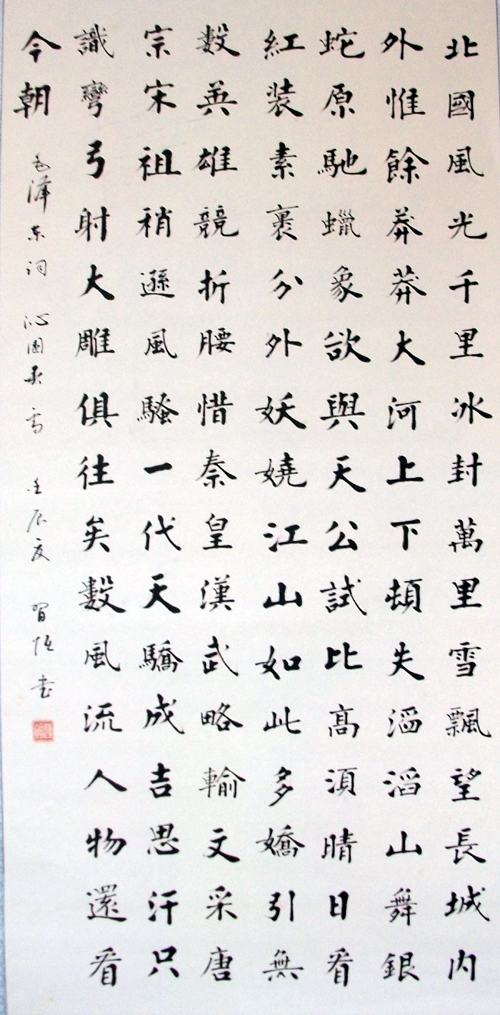 北國風光千里冰封萬里雪飄望長城内
外惟餘莽莽大河上下頓失滔滔山舞銀
蛇原馳蠟象欲與天公試比高須晴日看
紅装素裹分外妖嬈江山如此多嬌引無
数英雄競折腰惜秦皇漢武略輸文采唐
宗宋祖稍遜風騷一代天驕成吉思汗只
識彎弓射大雕俱往矣數風流人物還看
今朝
毛澤东词 沁園春雪 壬辰夏 书